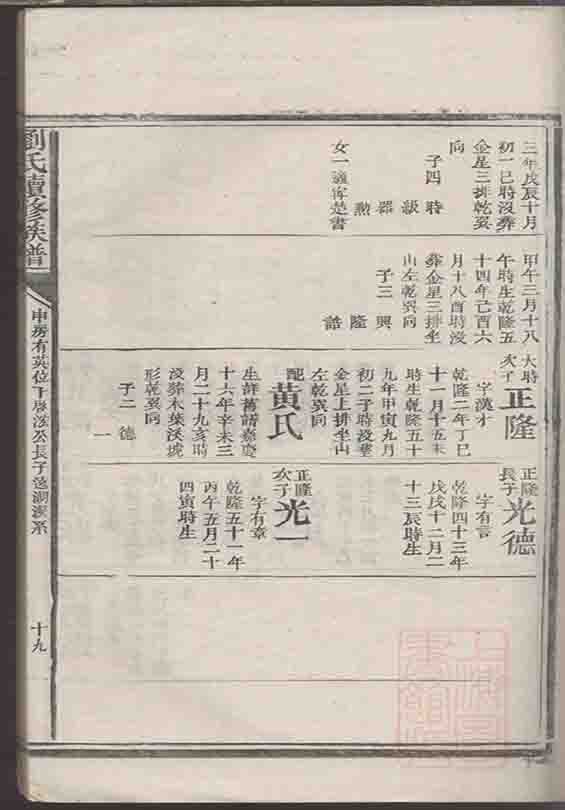 三年戊辰十月
初一巳時沒葬
金星三排乾巽
向
子四 時
級
器
勲
女一適許楚書
甲午三月十八
午時生乾隆五
十四年己酉六
月十八酉時沒
葬金星三排坐
山左乾巽向
子三 興
隆
誥
大時
次子
正隆
字漢才
乾隆二年丁巳
十一月十五未
時生乾隆五十
九年甲寅九月
初二子時沒葬
金星上排坐山
左乾巽向
配
黃氏
生詳舊譜嘉慶
十六年辛未三
月二十九亥時
沒葬木葉沒虎
形乾巽向
子二 德
一
正隆
長子
光德
字有言
乾隆四十三年
戊戌十二月二
十三辰時生
正隆
次子
光一
字有章
乾隆五十一年
丙午五月二十
四寅時生
劉氏續修族譜
申房有英位下啓
公長子
系
十九
上海圖
書館藏